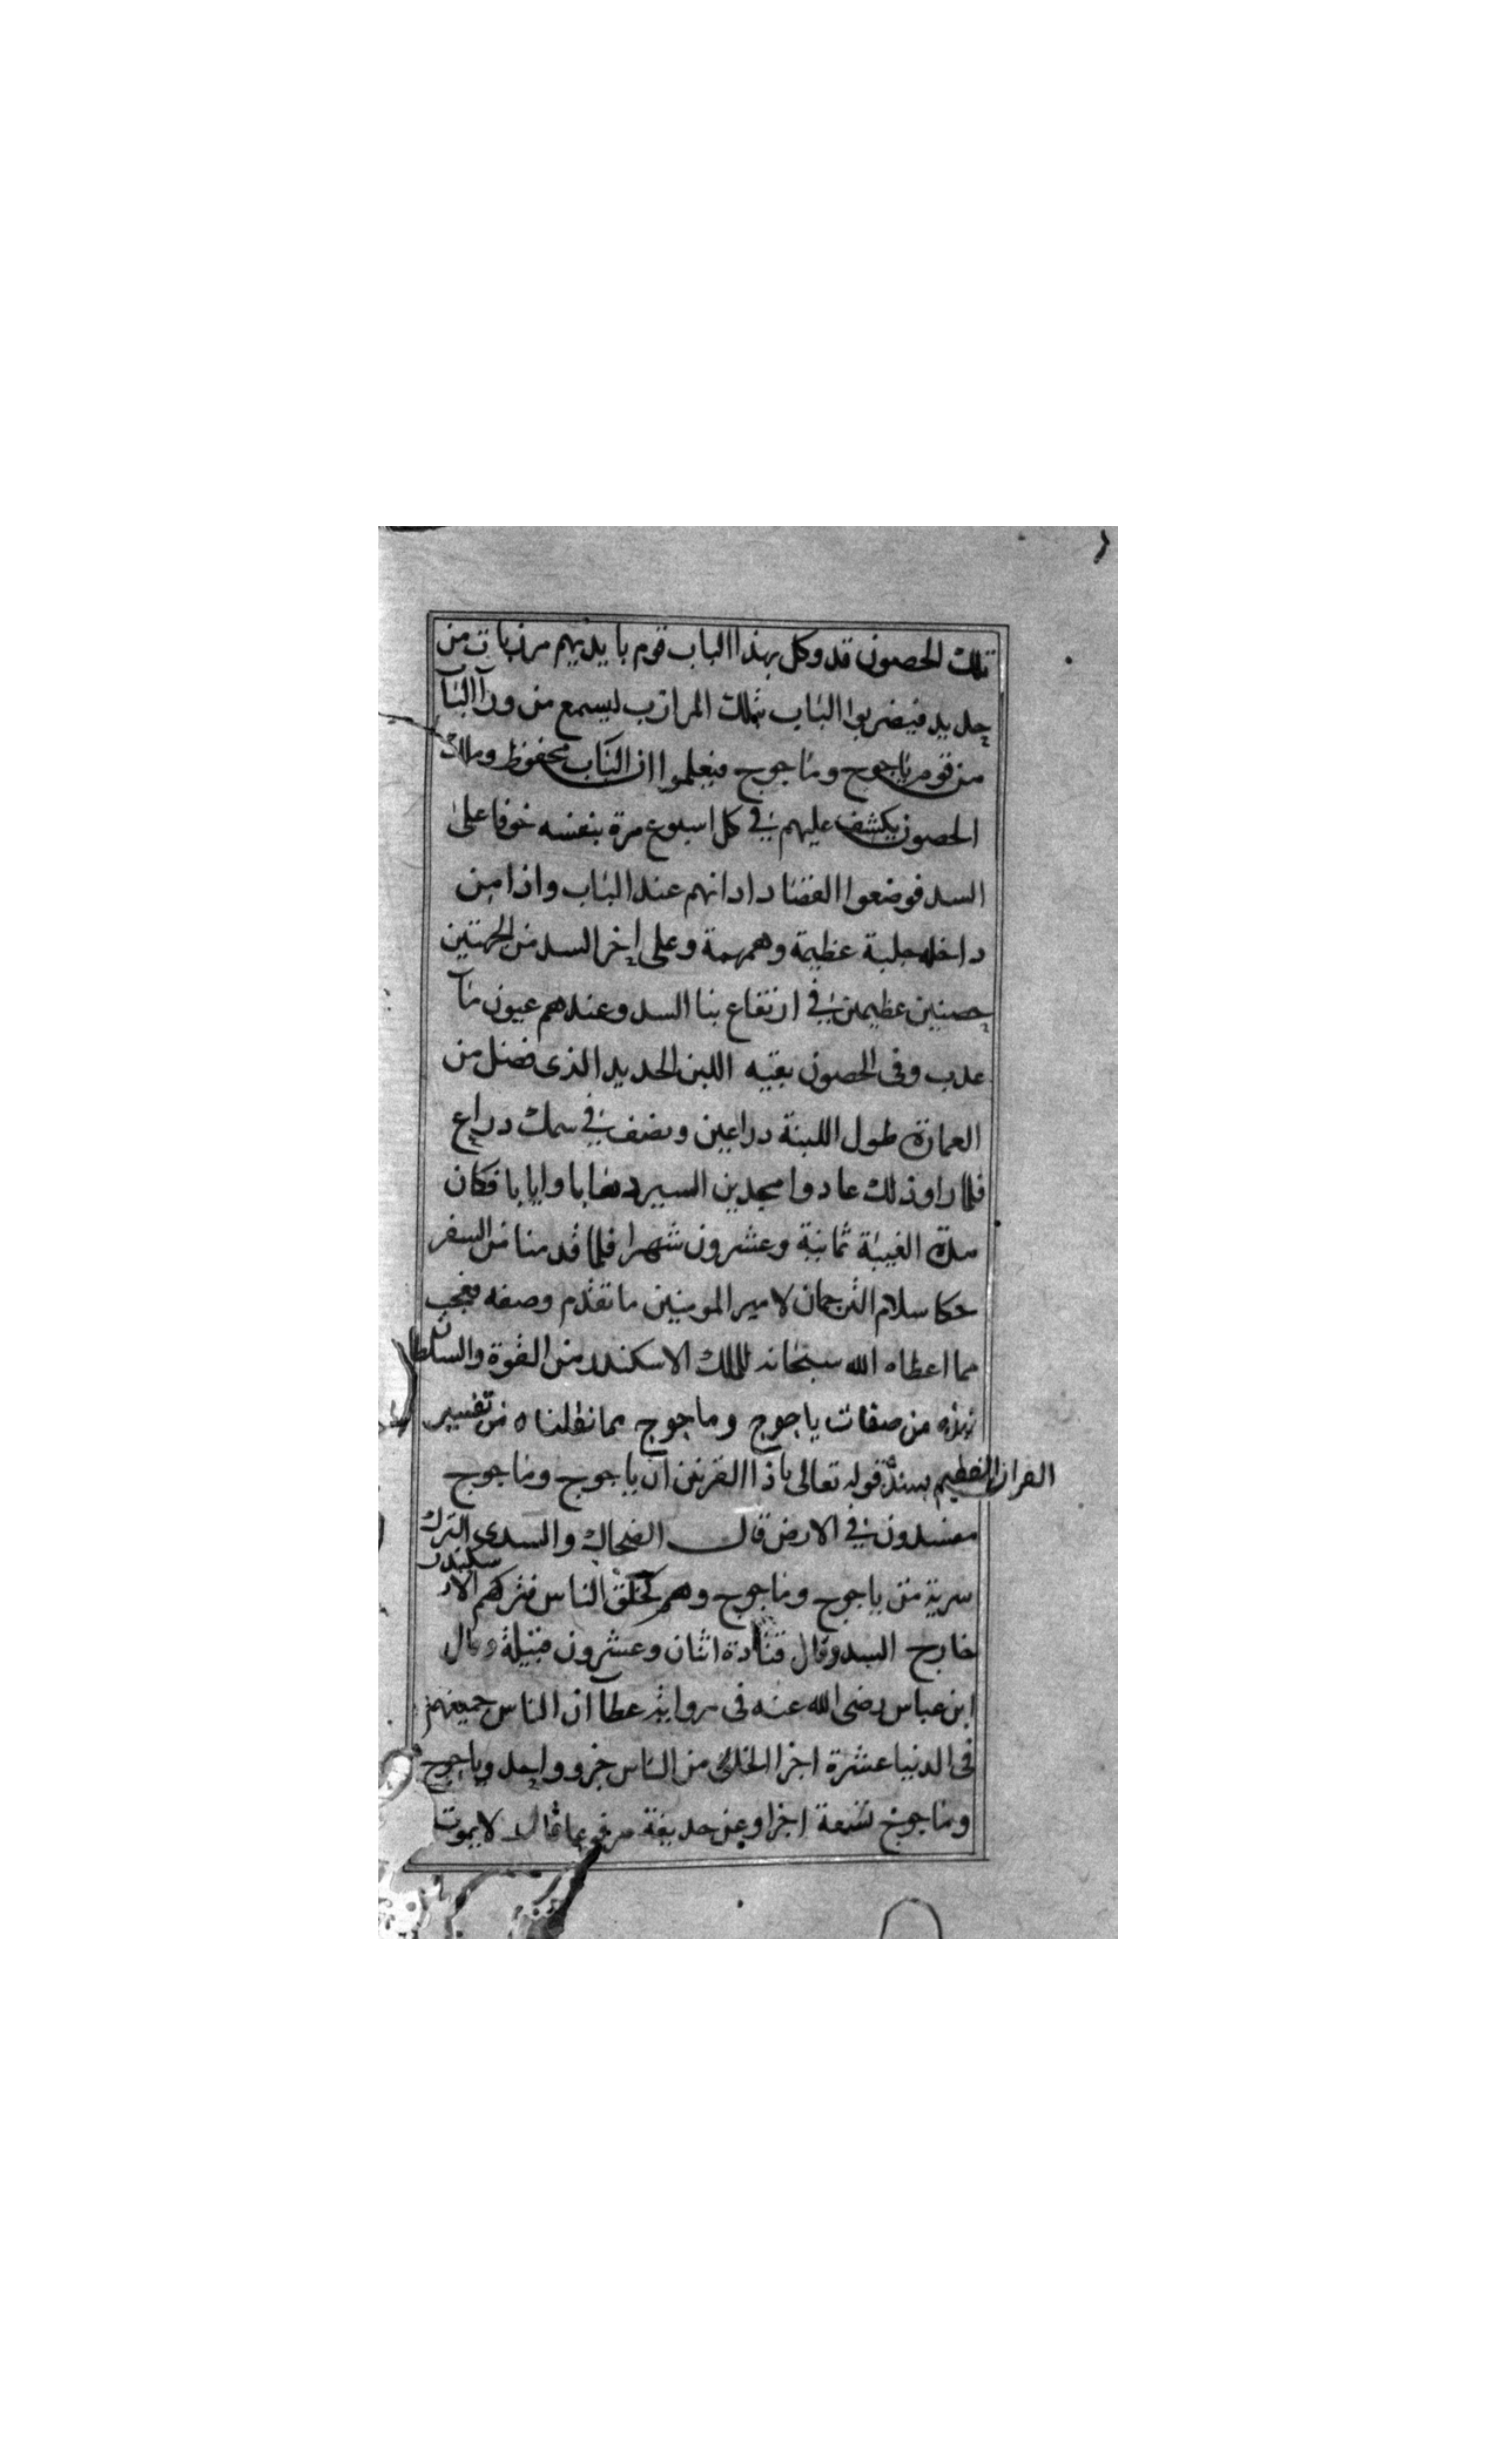 تلك الحصون قد وكل بهذا الباب قوم بايديهم مرزبات من
حديد فيضربوا الباب بتلك المرازب ليسمع من ورآ الباب
من قوم ياجوج وماجوج فيعلموا ان الباب محفوظ وملك
الحصون يكشف عليهم في كل اسبوع مرة بنفسه خوفا على
السد فوضعوا القصاد اداانهم عند الباب واذا من
داخله جلبة عظيمة وهمهمة وعلى اخر السد من الجهتين
حصنين عظيمين في ارتفاع بنا السد وعندهم عيون مآ
عدب وفى الحصون بقيه اللبن الحديد الذى فضل من
العمارة طول اللبنة دراعين ونصف في سمك دراع
فلما راوذلك عادوا مجدين السير دهابا وايابا فكان
مدة الغيبة ثمانية وعشرون شهرا فلما قدمنا من السفر
حكا سلام الترجمان لامير المومنين ما تقدم وصفه فعجب
مما اعطاه الله سبحانه للملك الاسكندر من القوة والسلطان
نبذه من صفات ياجوج وماجوج مما نقلناه من تفسير
القران العظيم بسند قوله تعالى ياذا القرنين ان ياجوج وماجوج
مفسدون في الارض قال الضحاك والسدى الترك
سرية من ياجوج وماجوج وهم كخلق الناس فتركهم الاسكندر
خارج السد وقال قتادة اثنان وعشرون قبيلة وقال
ابن عباس رضى الله عنه فى رواية عطا ان الناس جميعهم
فى الدنيا عشرة اجزا الخلق من الناس جزو واحد وياجوج
وماجوج تسعة اجزا وعن حديفة مرفوعا قال لايموت